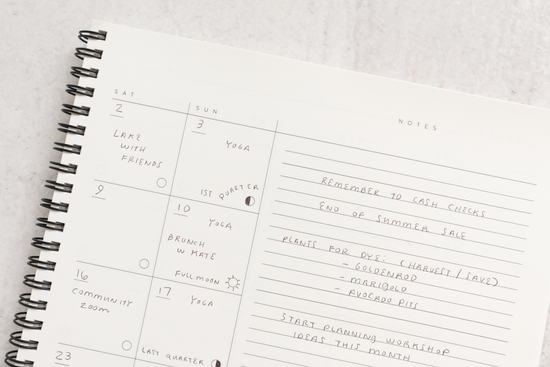 SAT
2
LAKE
WITH
FRIENDS
9
16
COMMUNITY
ZOOM
23
SUN
3
YOGA
1ST QUARTER
10
YOGA
BRUNCH
W KATE
FULL MOON
17
YOGA
LAST QUARTER
NOTES
REMEMBER TO CASH CHECKS
END OF SUMMER SALE
PLANTS FOR DYE: (HARVEST / SAVE)
- GOLDENROD
- MARIGOLD
- AVOCADO PITS
START PLANNING WORKSHOP
IDEAS THIS MONTH